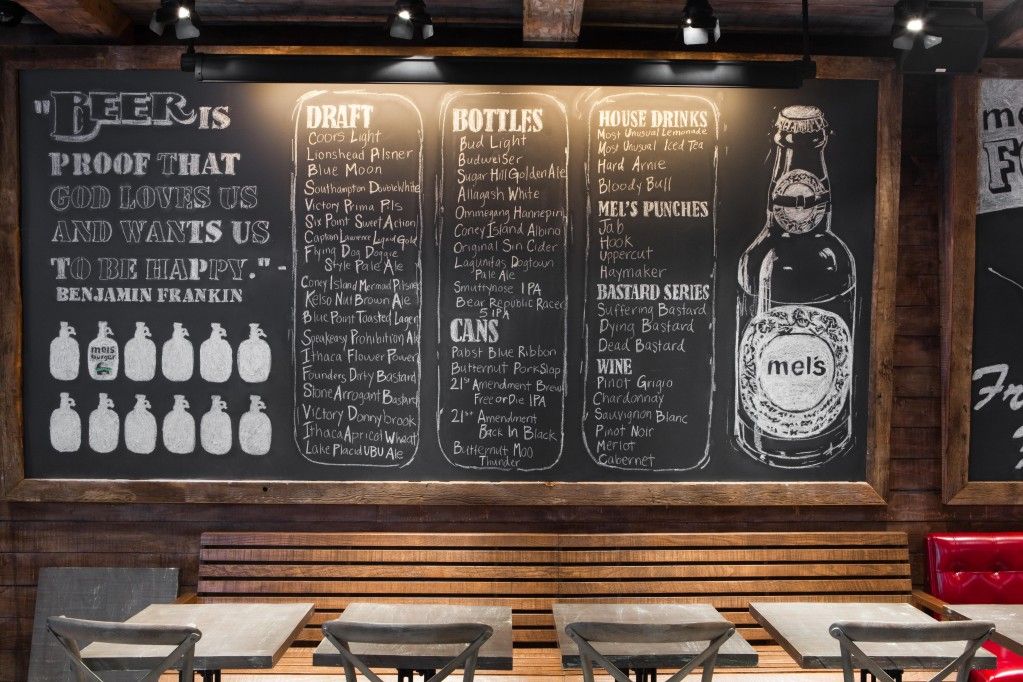 "BEER IS
PROOF THAT
GOD LOVES US
AND WANTS US
TO BE HAPPY." -
BENJAMIN FRANKIN
mels
burger
DRAFT
Coors Light
Lionshead Pilsner
Blue Moon
Southampton Double White
Victory Prima Pils
Six Point Sweet Action
Captain Lawrence Liquid Gold
Flying Dog Doggie
Style Pale Ale
Coney Island Mermaid Pilsner
Kelso Nut Brown Ale
Blue Point Toasted Lager
Speakeasy Prohibition Ale
Ithaca Flower Power
Founders Dirty Bastard
Stone Arrogant Bastard
Victory Donnybrook
Ithaca Apricot Wheat
Lake Placid UBU Ale
BOTTLES
Bud Light
Budweiser
Sugar Hill Golden Ale
Allagash White
Ommegang Hannepin
Coney Island Albino
Original Sin Cider
Lagunitas Dogtown
Pale Ale
Smuttynose IPA
Bear Republic Racer
5 IPA
CANS
Pabst Blue Ribbon
Butternut Pork Slap
21st Amendment Brew
Free or Die IPA
21st Amendment
Back In Black
Butternut Moo
Thunder
HOUSE DRINKS
Most Unusual Lemonade
Most Unusual Iced Tea
Hard Arnie
Bloody Bull
MEL'S PUNCHES
Jab
Hook
Uppercut
Haymaker
BASTARD SERIES
Suffering Bastard
Dying Bastard
Dead Bastard
WINE
Pinot Grigio
Chardonnay
Sauvignon Blanc
Pinot Noir
Merlot
Cabernet
mel's